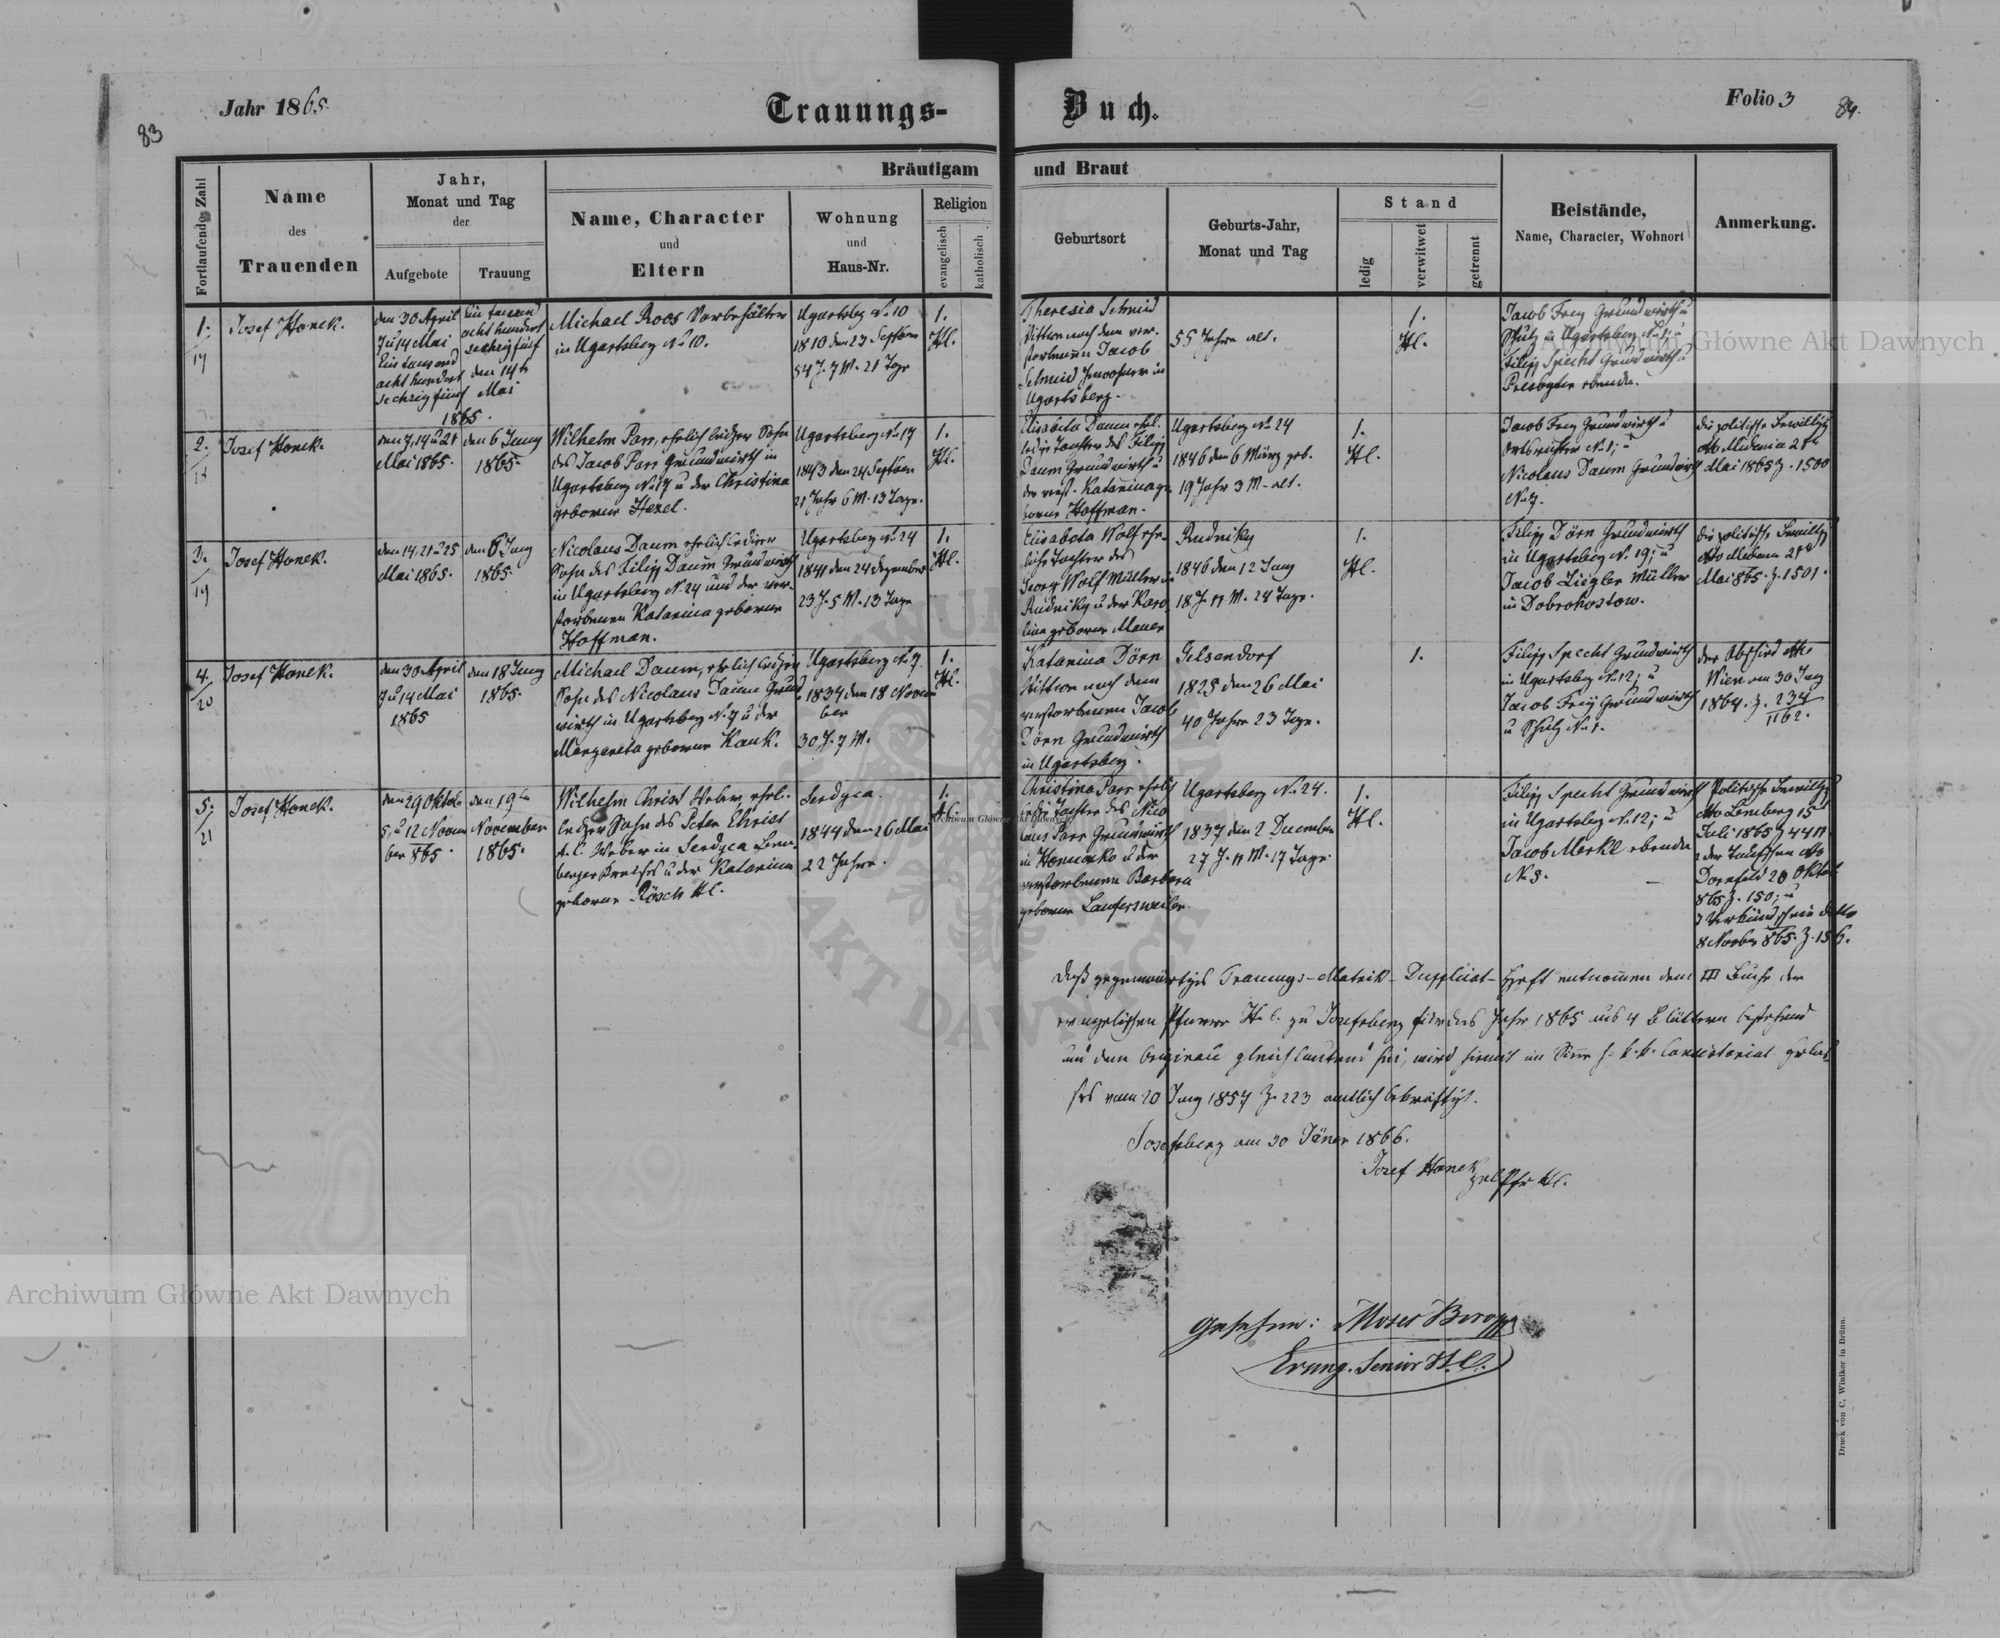 Jahr 1865.
Trauungs-
Buch.
Folio 3
83
84.
Fortlaufende Zahl
Name
des
Trauenden
Jahr,
Monat und Tag
der
Aufgebote
Trauung
Bräutigam
und Braut
Name, Character
und
Eltern
Wohnung
und
Haus-Nr.
Religion
evangelisch
katholisch
Geburtsort
Geburts-Jahr,
Monat und Tag
Stand
ledig
verwitwet
getrennt
Beistände,
Name, Character, Wohnort
Anmerkung.
1.
17
Josef Honek.
den 30 April
7 u 14 Mai
Ein tausend
acht hundert
sechzig fünf
Ein tausend
acht hundert
sechzig fünf
den 14t
Mai
1865.
Michael Roos
in Ugartsberg No 10.
Ugartsbg No 10
1810 den 23 Septem
54 J. 7 M. 21 Tage
1.
H.C.
Theresia Schmid
Wittwe nach dem ver-
storbenen Jacob
Schmid Inwohner in
Ugartsberg.
55 Jahre alt.
1.
H.C.
Jacob Frey Grundwirth u
Schulz in Ugartsberg No 1; u
Filipp Specht Grundwirth u
Presbyter ebenda.
2.
18
Josef Honek.
den 7, 14 u 21
Mai 1865.
den 6 Juny
1865.
Wilhelm Parr, ehelich lediger Sohn
des Jacob Parr Grundwirth in
Ugartsberg No 17 u der Christina
geborene Hexel.
Ugartsberg No 17
1843 den 24 Septem
21 Jahr 6 M. 13 Tage.
1.
H.C.
Elisabeta Daum ehel.
ledige Tochter des Filipp
Daum Grundwirth u
der verst. Katarina ge-
borene Hoffman.
Ugartsberg No 24
1846 den 6 März geb.
19 Jahr 3 M. alt.
1.
H.C.
Jacob Frey Grundwirth u
Ortsrichter No 1; u
Nicolaus Daum Grundwirth
No 7.
die politische Bewillig
dto Medenia 21te
Mai 1865 Z. 1500
3.
19
Josef Honek.
den 14, 21 u 25
Mai 1865.
den 6 Juny
1865.
Nicolaus Daum ehelich lediger
Sohn des Filipp Daum Grundwirth
in Ugartsberg No 24 und der ver-
storbenen Katarina geborene
Hoffman.
Ugartsberg No 24
1841 den 24 Dezember
23 J. 5 M. 13 Tage
1.
H.C.
Elisabeta Wolf ehe-
liche Tochter des
Georg Wolf Müller in
Rudniky u der Karo-
lina geborene Mauer
Rudniky
1846 den 12 Juny
18 J. 11 M. 24 Tage.
1.
H.C.
Filipp Dörn Grundwirth
in Ugartsberg No 19; u
Jacob Ziegler Müller
in Dobrohostow.
die politische Bewillig
dto Medenia 21te
Mai 865. Z. 1501.
4.
20
Josef Honek.
den 30 April
7 u 14 Mai
1865
den 18 Juny
1865.
Michael Daum, ehelich lediger
Sohn des Nicolaus Daum Grund-
wirth in Ugartsberg No 7 u der
Margareta geborene Kauk.
Ugartsberg No 7.
1834 den 18 Novem
ber
30 J. 7 M.
1.
H.C.
Katarina Dörn
Wittwe nach dem
verstorbenen Jacob
Dörn Grundwirth
in Ugartsberg.
Gelsendorf
1825 den 26 Mai
40 Jahre 23 Tage.
1.
Filipp Specht Grundwirth
in Ugartsberg No 12; u
Jacob Frey Grundwirth
u Schulz No 1.
der Abschied dto
Wien am 30 Juny
1864. Z. 234
1162.
5.
21
Josef Honek.
den 29 Oktob
5, u 12 Novem
ber 865.
den 19te
November
1865.
Wilhelm Christ Weber, ehel.
lediger Sohn des Peter Christ
A.C. Weber in Serdyca Lem-
berger Kreises u der Katarina
geborene Rösch H.C.
Serdyca.
1844 den 26 Mai
22 Jahre.
1.
H.C.
Christina Parr ehelich
ledige Tochter des Nico
laus Parr Grundwirth
in u der
verstorbenen Barbara
geborene Laufersweiler.
Ugartsberg No 24.
1837 den 2 December
27 J. 11 M. 17 Tage.
1.
H.C.
Filipp Specht Grundwirth
in Ugartsberg No 12; u
Jacob Merkl ebenda
No 8.
Politische Bewillig
dto Lemberg 15
Juli 1865 Z 4411
dto
Dornfeld 20 Oktob
865 Z. 150; u
3 Verkündschein dto
8 Novbr 865. Z. 156.
Daß gegenwärtiges Trauungs-Matrik-Dupplicat-Heft entnommen dem III Buche der
evangelischen Pfarre H.C. zu Josefsberg für das Jahr 1865 aus 4 Blättern bestehend
und dem Original gleichlautend sei, wird hiemit im Sinne h. k.k. Consistorial Erlas-
ses vom 20 Juny 1857 Z. 223 amtlich bekräftigt.
Josefsberg am 30 Jäner 1866.
Josef Honek
Pfr H.C.
Gesehen: Moses Boropp
Evang. Senior H.C.
Druck von C. Winiker in Brünn.
Archiwum Główne Akt Dawnych
Archiwum Główne Akt Dawnych
Archiwum Główne Akt Dawnych